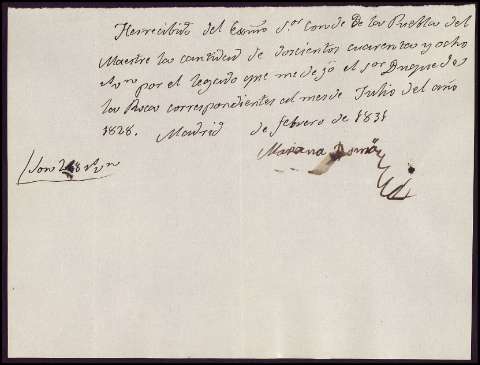 He recivido del Exmo Sor Conde De la Puebla del
Maestre la cantidad de doscientos cuarenta y ocho
rs vn por el legado que me dejo el sor Duque de
la Roca correspondientes al mes de Julio del año
1828. Madrid de febrero de 1831
Mariana Romá
Son 248 rs vn